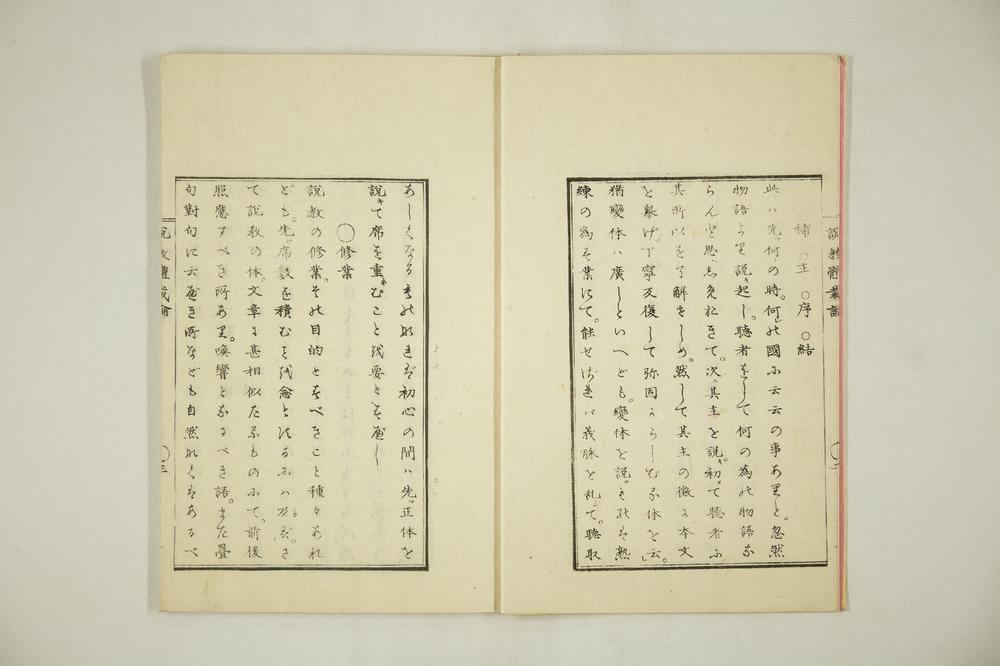 ○補 ○主 ○序 ○結
此ハ先何の時。何の國に云云の事ありと。忽然
物語より説起し。聽者をして何の為の物語な
らんと思ハしめおきて。次に其主を説初て聽者に
其所以を了解をしめ。然して其主の徴に本文
を擧げ丁寧反復して弥固からしむる体を云。
猶變体ハ廣しといへども。變体を説ハそれは熟
練の為す業にて。能せざれバ義脉を乱て。聽取
あしくなるものなれば初心の間ハ先正体を
説て席を重むこと越要とすべし
○修業
説教の修業。その目的とすべきこと種々あれ
ども。先席数を積むを越念とするにハ及ず。さ
て説教の体。文章に甚相似たるものにて。前後
照應すべき所あり。喚響となすべき語。また疊
句對句に云べき所なども自然なくはあるべ